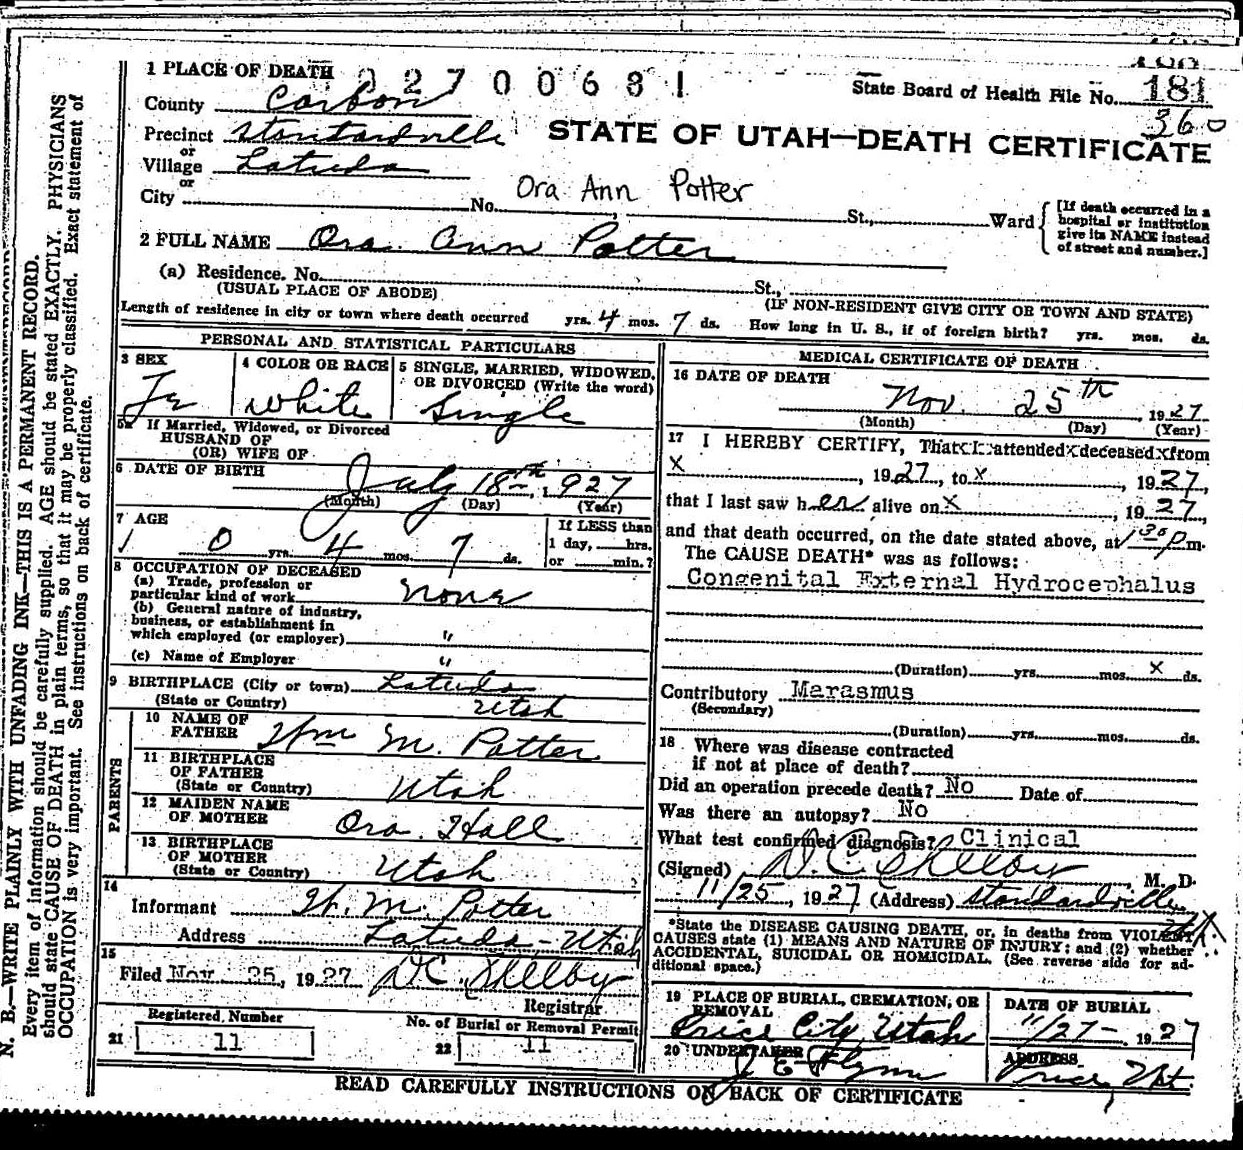 1 PLACE OF DEATH 2 2 7 0 0 6 8 1
State Board of Health File No. 181
360
County Carbon
Precinct Standardville
or
Village Latuda
or
City No. St., Ward
STATE OF UTAH—DEATH CERTIFICATE
Ora Ann Potter
[If death occurred in a
hospital or institution
give its NAME instead
of street and number.]
2 FULL NAME Ora Ann Potter
(a) Residence. No. St.,
(USUAL PLACE OF ABODE) (IF NON-RESIDENT GIVE CITY OR TOWN AND STATE)
Length of residence in city or town where death occurred yrs. 4 mos. 7 ds. How long in U. S., if of foreign birth? yrs. mos. ds.
PERSONAL AND STATISTICAL PARTICULARS
3 SEX
Fe
4 COLOR OR RACE
White
5 SINGLE, MARRIED, WIDOWED,
OR DIVORCED (Write the word)
Single
5a If Married, Widowed, or Divorced
HUSBAND OF
(OR) WIFE OF
6 DATE OF BIRTH
July 18th, 1927
(Month) (Day) (Year)
7 AGE
0 yrs. 4 mos. 7 ds.
If LESS than
1 day, hrs.
or min.?
8 OCCUPATION OF DECEASED
(a) Trade, profession or
particular kind of work None
(b) General nature of industry,
business, or establishment in
which employed (or employer) "
(c) Name of Employer "
9 BIRTHPLACE (City or town) Latuda
(State or Country) Utah
PARENTS
10 NAME OF
FATHER Wm M. Potter
11 BIRTHPLACE
OF FATHER
(State or Country) Utah
12 MAIDEN NAME
OF MOTHER Ora Hall
13 BIRTHPLACE
OF MOTHER
(State or Country) Utah
14
Informant W. M. Potter
Address Latuda - Utah
15
Filed Nov 25, 1927 D C Shelby
Registrar
Registered Number
21 11
No. of Burial or Removal Permit
22 11
MEDICAL CERTIFICATE OF DEATH
16 DATE OF DEATH
Nov. 25th, 1927
(Month) (Day) (Year)
17 I HEREBY CERTIFY, That I attended deceased from
x, 1927, to x, 1927,
that I last saw her alive on x, 1927,
and that death occurred, on the date stated above, at 1 30 p m.
The CAUSE DEATH* was as follows:
Congenital External Hydrocephalus
(Duration) yrs. mos. x ds.
Contributory Marasmus
(Secondary)
(Duration) yrs. mos. ds.
18 Where was disease contracted
if not at place of death?
Did an operation precede death? No Date of
Was there an autopsy? No
What test confirmed diagnosis? Clinical
(Signed) D. C. Shelby, M. D.
11/25, 1927 (Address) Standardville
Ut.
*State the DISEASE CAUSING DEATH, or, in deaths from VIOLENT
CAUSES state (1) MEANS AND NATURE OF INJURY; and (2) whether
ACCIDENTAL, SUICIDAL OR HOMICIDAL. (See reverse side for ad-
ditional space.)
19 PLACE OF BURIAL, CREMATION, OR
REMOVAL
Price City, Utah
DATE OF BURIAL
11/27 - 1927
20 UNDERTAKER
J E Flynn
ADDRESS
Price, Ut.
READ CAREFULLY INSTRUCTIONS ON BACK OF CERTIFICATE
N. B.—WRITE PLAINLY WITH UNFADING INK—THIS IS A PERMANENT RECORD.
Every item of information should be carefully supplied. AGE should be stated EXACTLY. PHYSICIANS
should state CAUSE OF DEATH in plain terms, so that it may be properly classified. Exact statement of
OCCUPATION is very important. See instructions on back of certificate.